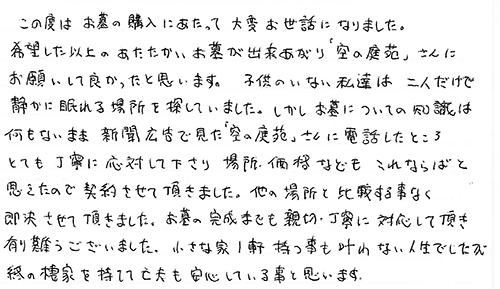 この度は お墓の購入にあたって 大変お世話になりました。
希望した以上の あたたかい お墓が出来あがり「空の庭苑」さんに
お願いして良かったと思います。 子供のいない私達は 二人だけで
静かに眠れる場所を探していました。しかしお墓についての知識は
何もないまま 新聞広告で見た「空の庭苑」さんに電話したところ
とても 丁寧に応対して下さり 場所、価格なども これならばと
思えたので 契約させて頂きました。他の場所と比較する事なく
即決させて頂きました。お墓の完成までも親切・丁寧に対応して頂き
有り難うございました。小さな家1軒 持つ事も叶わない人生でしたが
終の棲家を持てて亡夫も安心している事と思います。